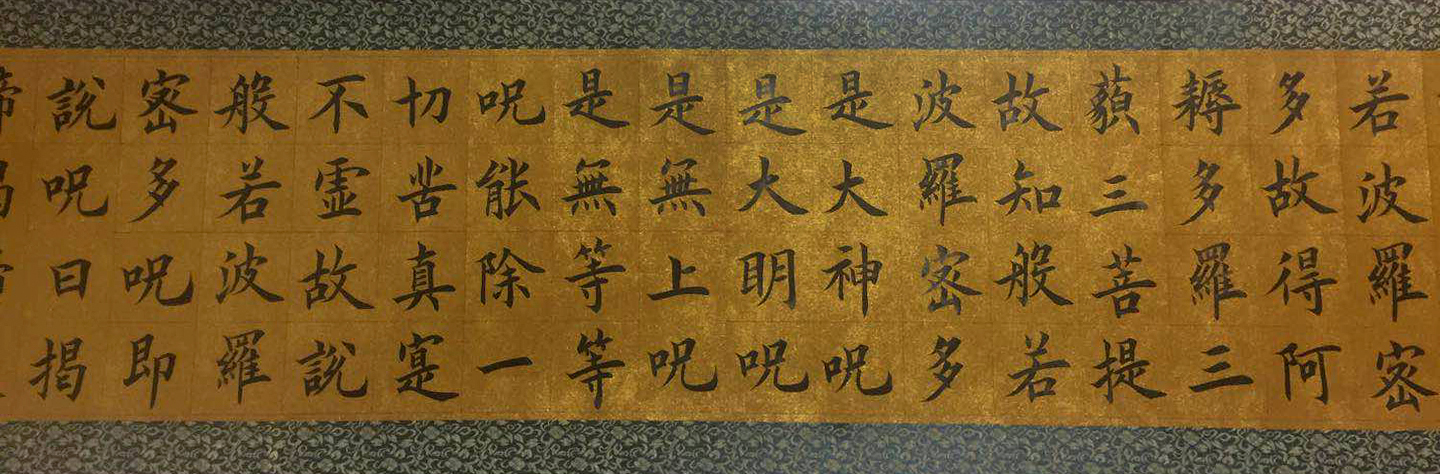 若波羅密
多故得阿
耨多羅三
藐三菩提
故知般若
波羅密多
是大神呪
是大眀呪
是無上呪
是無等等
呪能除一
切苦真寔
不虚故說
般若波羅
密多呪即
說呪曰揭